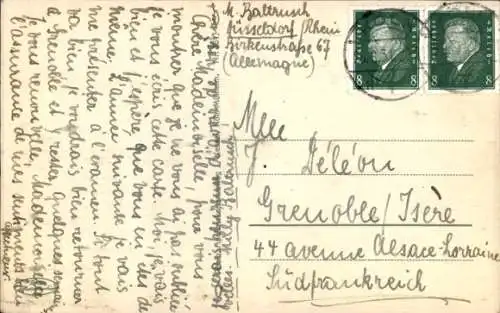 M. Baltrusch
Düsseldorf/Rhein
Birkenstraße 67
(Allemagne)
Deutsches Reich
8 8
Deutsches Reich
8 8
Mlle
J. Déléon
Grenoble/Isère
44 avenue Alsace-Lorraine
Südfrankreich
Chère Mademoiselle, pour vous
montrer que je ne vous ai pas oubliée
je vous écris cette carte. Moi, je vais
bien et j'espère que vous en êtes de
même. L'année suivante je vais
me présenter à l'examen. Si tout
va bien je voudrais bien retourner
à Grenoble et y rester quelques semaines
Je vous renouvelle, Mademoiselle
l'assurance de mes sentiments